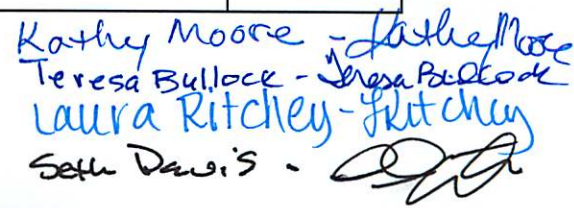 Kathy Moore - Kathy Moore
Teresa Bullock - Teresa Bullock
Laura Ritchey - LRitchey
Seth Davis -